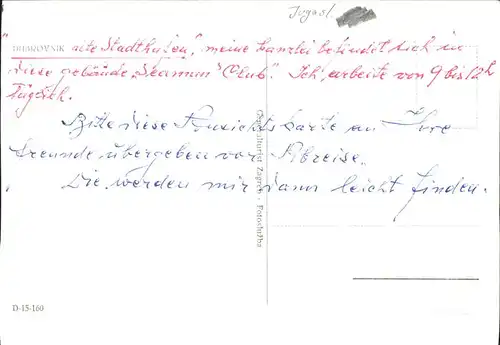 Jugosl.
DUBROVNIK „alte Stadthafen", meine Kanzlei befindet sich in
diese gebäude „Seaman's Club". Ich arbeite von 9 bis 12h
Bitte diese Ansichtskarte an Ihre
Freunde übergeben vor Abreise.
Die werden mir dann leicht finden.
Zagreb - Fotoslužba
D-15-160